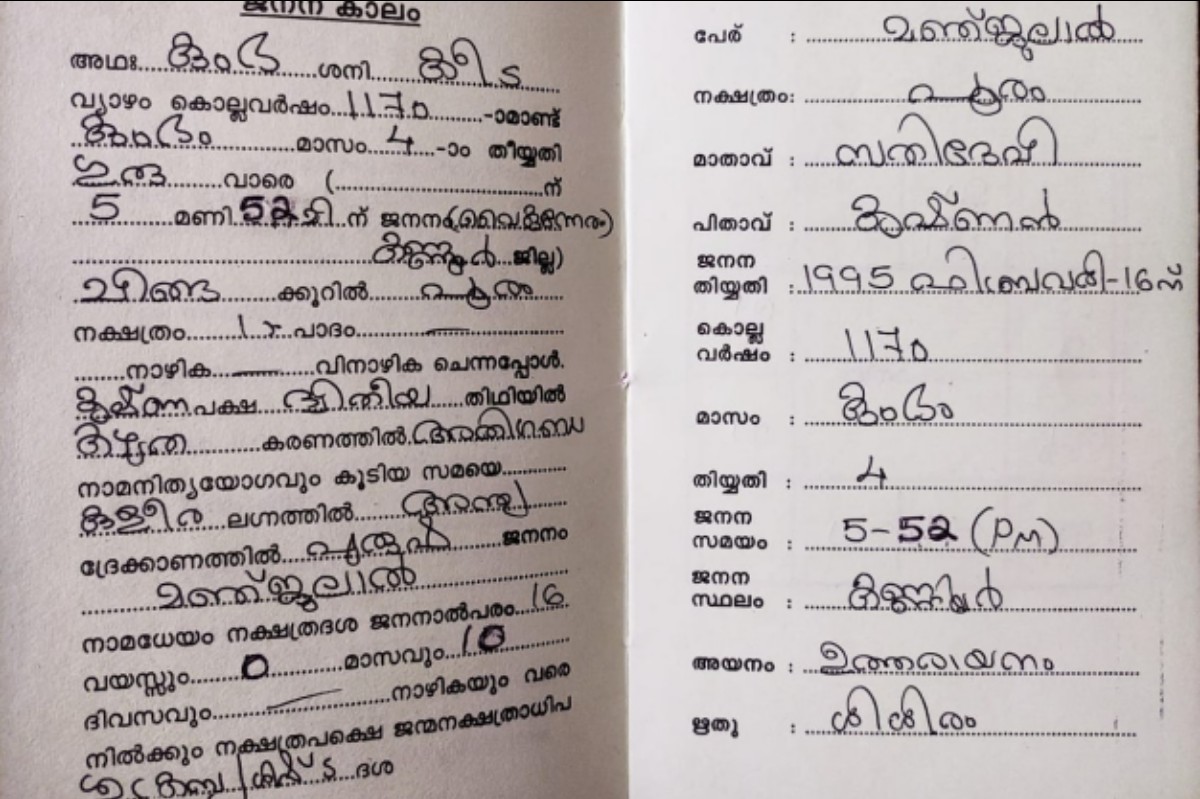 ജനന കാലം
അഥഃ കുംഭ ശനി
വ്യാഴം കൊല്ലവർഷം 1170 -ാമാണ്ട്
കുംഭം മാസം 4 -ാം തീയ്യതി
ഗുരു വാരെ ( ന്
5 മണി 52 മി ന് ജനനം (വൈകുന്നേരം)
കണ്ണൂർ ജില്ല)
ചിങ്ങ ക്കൂറിൽ പൂരം
നക്ഷത്രം പാദം
നാഴിക വിനാഴിക ചെന്നപ്പോൾ.
കൃഷ്ണ പക്ഷ ദ്വിതീയ തിഥിയിൽ
കരണത്തിൽ അതിഗണ്ഡ
നാമനിത്യയോഗവും കൂടിയ സമയെ
ലഗ്നത്തിൽ അന്ത്യ
ദ്രേക്കാണത്തിൽ പുരുഷ ജനനം
മഞ്ജുലാൽ
നാമധേയം നക്ഷത്രദശ ജനനാൽപരം 16
വയസ്സും 0 മാസവും 10
ദിവസവും നാഴികയും വരെ
നിൽക്കും നക്ഷത്രപക്ഷെ ജന്മനക്ഷത്രാധിപ
ശുക്ര ശിഷ്ട ദശ
പേര് : മഞ്ജുലാൽ
നക്ഷത്രം: പൂരം
മാതാവ് : സതിദേവി
പിതാവ് : കൃഷ്ണൻ
ജനന
തിയ്യതി : 1995 ഫിബ്രവരി-16ന്
കൊല്ല
വർഷം : 1170
മാസം : കുംഭം
തിയ്യതി : 4
ജനന
സമയം : 5-52 (PM)
ജനന
സ്ഥലം : കണ്ണൂർ
അയനം : ഉത്തരായനം
ഋതു : ശിശിരം